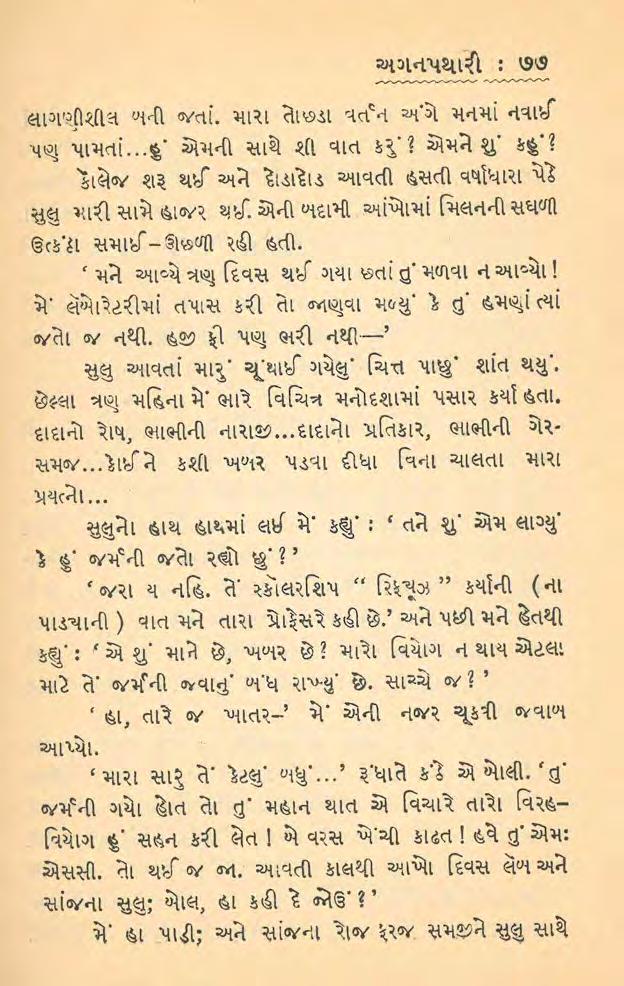 અગનપથારી : ૭૭
લાગણીશીલ બની જતાં. મારા તોછડા વર્તન અંગે મનમાં નવાઈ
પણ પામતાં...હું એમની સાથે શી વાત કરું? એમને શું કહું?
કૉલેજ શરૂ થઈ અને દોડાદોડ આવતી હસતી વર્ષાધારા પેઠે
સુલુ મારી સામે હાજર થઈ. એની બદામી આંખોમાં મિલનની સઘળી
ઉત્કંઠા સમાઈ–ઊછળી રહી હતી.
‘ મને આવ્યે ત્રણ દિવસ થઈ ગયા છતાં તું મળવા ન આવ્યો !
મેં લૅબોરેટરીમાં તપાસ કરી તો જાણવા મળ્યું કે તું હમણાં ત્યાં
જતો જ નથી. હજી ફી પણ ભરી નથી—’
સુલુ આવતાં મારું ચૂંથાઈ ગયેલું ચિત્ત પાછું શાંત થયું.
છેલ્લા ત્રણ મહિના મેં ભારે વિચિત્ર મનોદશામાં પસાર કર્યા હતા.
દાદાનો રોષ, ભાભીની નારાજી...દાદાનો પ્રતિકાર, ભાભીની ગેર-
સમજ...કોઈ ને કશી ખબર પડવા દીધા વિના ચાલતા મારા
પ્રયત્નો...
સુલુનો હાથ હાથમાં લઈ મેં કહ્યું : ‘ તને શું એમ લાગ્યું
કે હું જર્મની જતો રહ્યો છું ? ’
‘ જરા ય નહિ. તેં સ્કૉલરશિપ “ રિફ્યૂઝ ” કર્યાની ( ના
પાડ્યાની ) વાત મને તારા પ્રોફેસરે કહી છે.’ અને પછી મને હેતથી
કહ્યું : ‘ એ શું માને છે, ખબર છે ? મારો વિયોગ ન થાય એટલા
માટે તેં જર્મની જવાનું બંધ રાખ્યું છે. સાચ્ચે જ ? ’
‘ હા, તારે જ ખાતર–’ મેં એની નજર ચૂકવી જવાબ
આપ્યો.
‘ મારા સારુ તેં કેટલું બધું...’ રૂંધાતે કંઠે એ બોલી. ‘ તું
જર્મની ગયો હોત તો તું મહાન થાત એ વિચારે તારો વિરહ–
વિયોગ હું સહન કરી લેત ! બે વરસ ખેંચી કાઢત ! હવે તું એમ:
એસસી. તો થઈ જ જા. આવતી કાલથી આખો દિવસ લૅબ અને
સાંજના સુલુ; બોલ, હા કહી દે જોઉં ? ’
મેં હા પાડી; અને સાંજના રોજ ફરજ સમજીને સુલુ સાથે